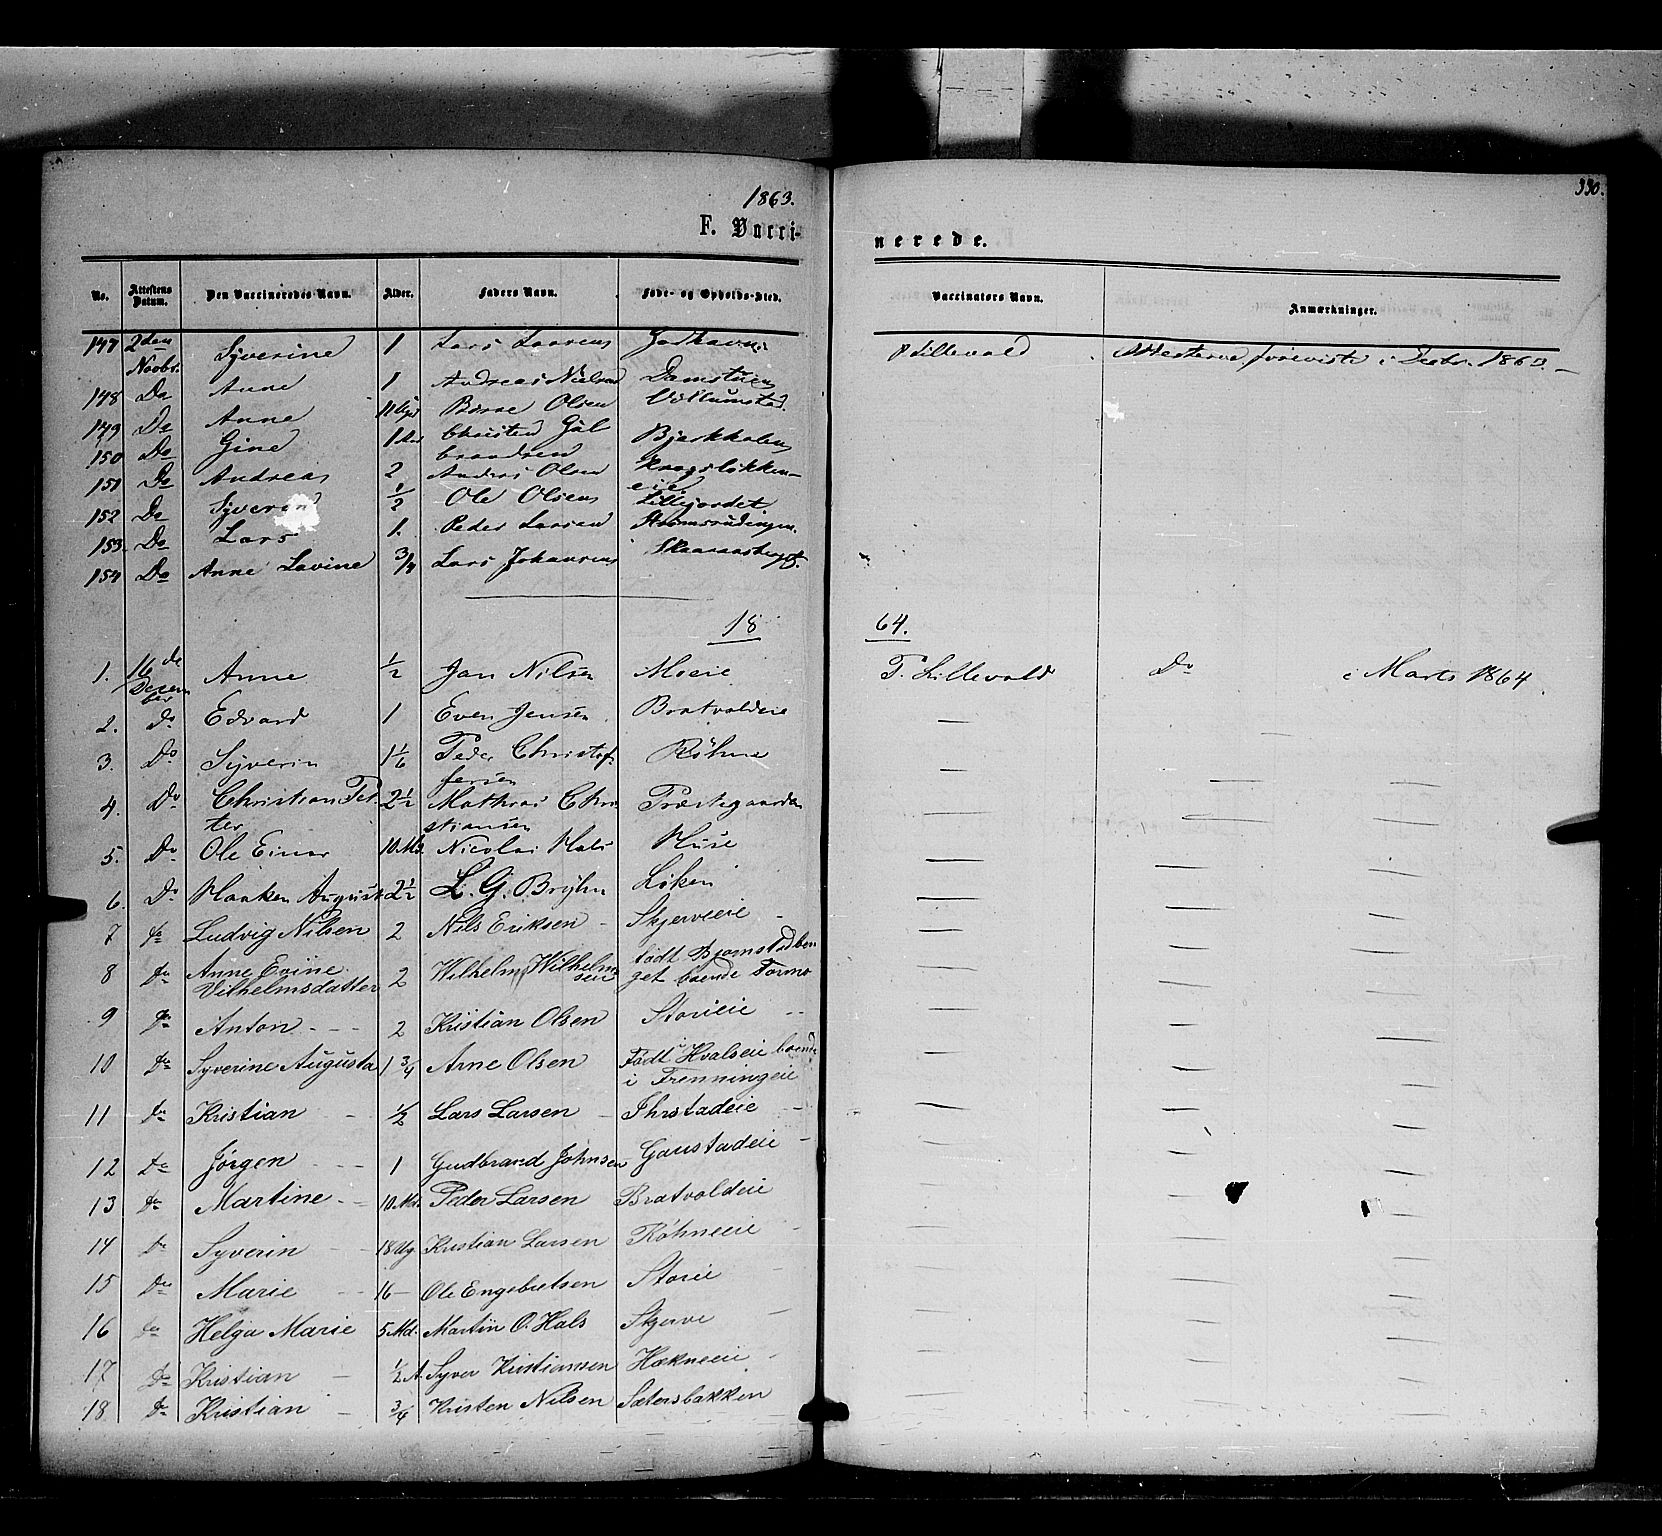 1863.
F. Vacci-
nerede.
330.
No. Attestens Datum. Den Vaccineredes Navn. Alder. Faders Navn. Føde- og Opholds-Sted. Vaccinators Navn. Anmærkninger.
147 2den Novbr. Syverine 1 Lars P Lillevold 1863.
148 Do Anne 1 Andreas Damstuen
149 Do Anne Olsen
150 Do Gine 1 Christen Gul brandsen
151 Do Andreas 2 Anders Olsen
152 Do Syverin 1/2 Ole Olsens Lillejordet
153. Do Lars 1. Peder Larsen
154 Do Anne Lovine 3/4 Lars Johansens
1864.
1. 16de Decem ber Anne 1/2 Jan Nilsen Moeie T. Lillevold Do i Marts 1864.
2. Do Edvard 1 Even Jensen Bratvoldeie
3. Do Syverin 1 1/6 Peder Christof fersen Røhne
4. Do Christian Pet ter 2 1/2 Mathias Chri stiansen Præstegaarden
5. Do Ole Einar 10 Md. Nicolai Hals Huse
6. Do Haaken August 2 1/2 L. G. Bryhn Løken
7 Do Ludvig Nilsen 2 Nils Eriksen - Skjerveeie
8 Do Anne Evine Vilhelmsdatter 2 Wilhelm Wilhelm sen født Bjørnstadber get boende Formo
9 Do Anton 2 Kristian Olsen Storeie
10 Do Syverine Augusta 1 3/4 Arne Olsen Født Hvalseie boende i Frenningeie
11 Do Kristian 1/2 Lars Larsen - Ihrstadeie
12 Do Jørgen 1 Gudbrand Johnsen Gaustadeie
13 Do Martine 10 Md. Peder Larsen Bratvoldeie
14 Do Syverin 18 Ug. Kristian Larsen Røhneeie
15 Do Marie 16 - Ole Engebretsen Storeie
16 Do Helga Marie 5 Md. Martin O. Hals Skjerve
17 Do Kristian 1/2 A Syver Kristiansen Hækneeie
18 Do Kristian 3/4 Kristen Nilsen Sætersbakken